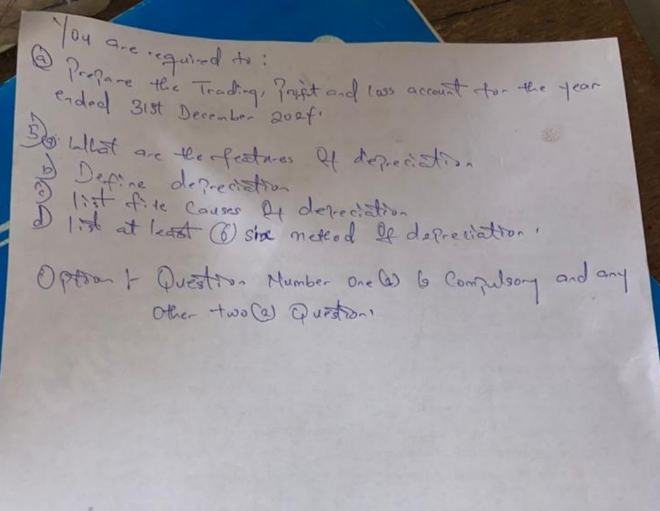 You are required to:
(a) Prepare the Trading, Profit and loss account for the year
ended 31st December 202f.
5)(a) What are the features of depreciation
b) Define depreciation
c) list five causes of depreciation
d) list at least (6) six method of depreciation.
Option:- Question Number one() is Compulsory and any
other two(2) Question.